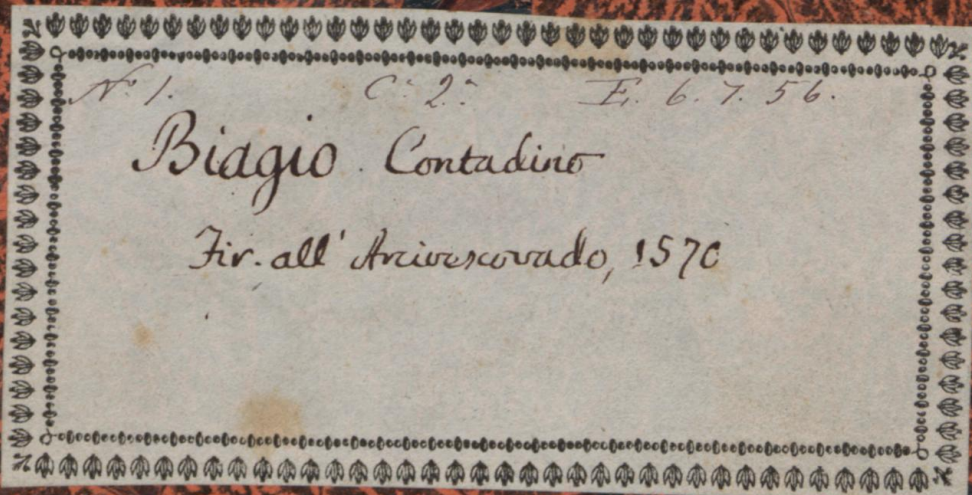 N.º 1. C.ª 2.ª E. 6. 7. 56.
Biagio Contadino
Fir. all' Arcivescovado, 1570